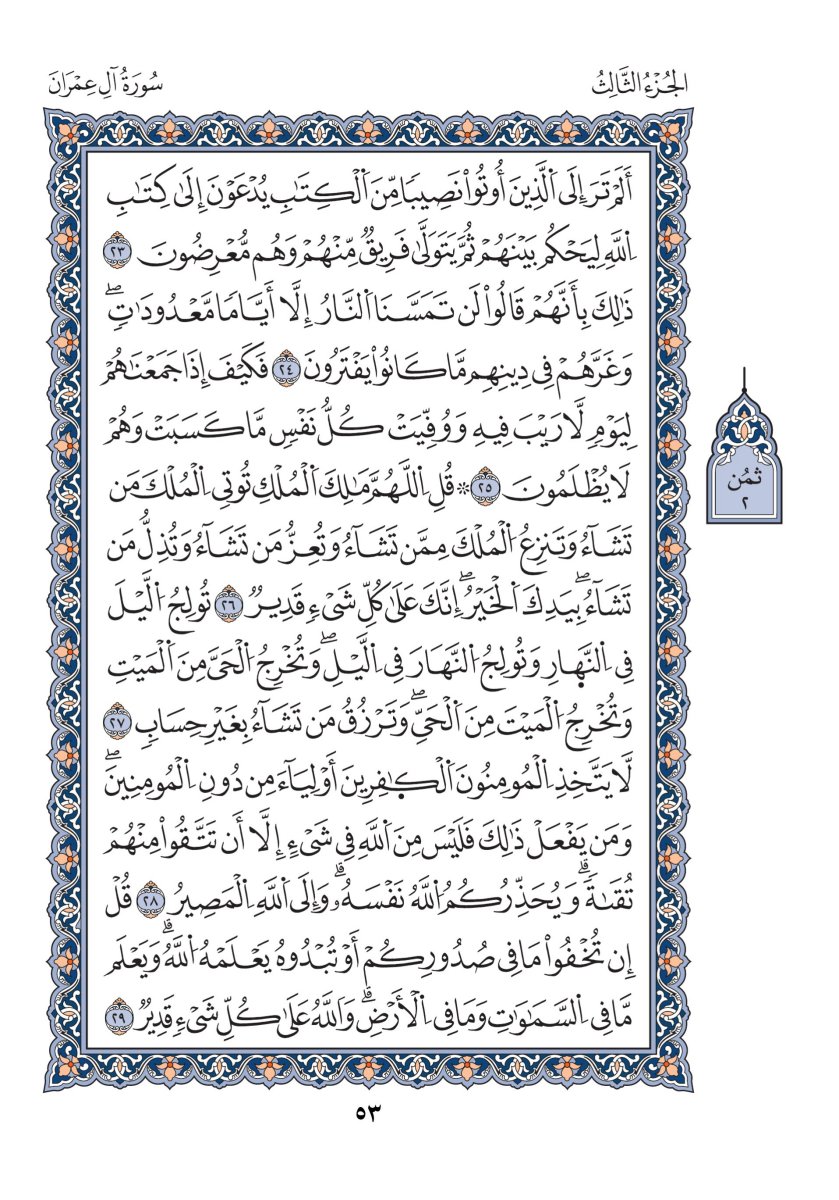 الجُزْءُ الثَّالِثُ
سُورَةُ آلِ عِمْرَانَ
أَلَمْ تَرَ إِلَى اَ۬لذِينَ أُوتُواْ نَصِيبٗا مِّنَ اَ۬لْكِتَٰبِ يُدْعَوْنَ إِلَىٰ كِتَٰبِ
اِ۬للَّهِ لِيَحْكُم بَيْنَهُمْ ثُمَّ يَتَوَلَّىٰ فَرِيقٞ مِّنْهُمْ وَهُم مُّعْرِضُونَ ٢٣
ذَٰلِكَ بِأَنَّهُمْ قَالُواْ لَن تَمَسَّنَا اَ۬لنَّارُ إِلَّا أَيَّامٗا مَّعْدُودَٰتٖۖ
وَغَرَّهُمْ فِي دِينِهِم مَّا كَانُواْ يَفْتَرُونَ ٢٤ فَكَيْفَ إِذَا جَمَعْنَٰهُمْ
لِيَوْمٖ لَّا رَيْبَ فِيهِ وَوُفِّيَتْ كُلُّ نَفْسٖ مَّا كَسَبَتْ وَهُمْ
لَا يُظْلَمُونَ ٢٥ ۞ قُلِ اِ۬للَّهُمَّ مَٰلِكَ اَ۬لْمُلْكِ تُوتِي اِ۬لْمُلْكَ مَن
ثمُن
٢
تَشَآءُ وَتَنزِعُ اُ۬لْمُلْكَ مِمَّن تَشَآءُ وَتُعِزُّ مَن تَشَآءُ وَتُذِلُّ مَن
تَشَآءُۖ بِيَدِكَ اَ۬لْخَيْرُۖ إِنَّكَ عَلَىٰ كُلِّ شَيْءٖ قَدِيرٞ ٢٦ تُولِجُ اُ۬لَّيْلَ
فِي اِ۬لنَّهٜارِ وَتُولِجُ اُ۬لنَّهَارَ فِي اِ۬لَّيْلِۖ وَتُخْرِجُ اُ۬لْحَيَّ مِنَ اَ۬لْمَيْتِ
وَتُخْرِجُ اُ۬لْمَيْتَ مِنَ اَ۬لْحَيِّۖ وَتَرْزُقُ مَن تَشَآءُ بِغَيْرِ حِسَابٖ ٢٧
لَّا يَتَّخِذِ اِ۬لْمُومِنُونَ اَ۬لْكٰٜفِرِينَ أَوْلِيَآءَ مِن دُونِ اِ۬لْمُومِنِينَۖ
وَمَن يَفْعَلْ ذَٰلِكَ فَلَيْسَ مِنَ اَ۬للَّهِ فِي شَيْءٍ إِلَّا أَن تَتَّقُواْ مِنْهُمْ
تُقَىٰةٗۗ وَيُحَذِّرُكُمُ اُ۬للَّهُ نَفْسَهُۥۗ وَإِلَى اَ۬للَّهِ اِ۬لْمَصِيرُ ٢٨ قُلْ
إِن تُخْفُواْ مَا فِي صُدُورِكُمْ أَوْ تُبْدُوهُ يَعْلَمْهُ اُ۬للَّهُۗ وَيَعْلَم
مَّا فِي اِ۬لسَّمَٰوَٰتِ وَمَا فِي اِ۬لْأَرْضِۗ وَاللَّهُ عَلَىٰ كُلِّ شَيْءٖ قَدِيرٞ ٢٩
٥٣